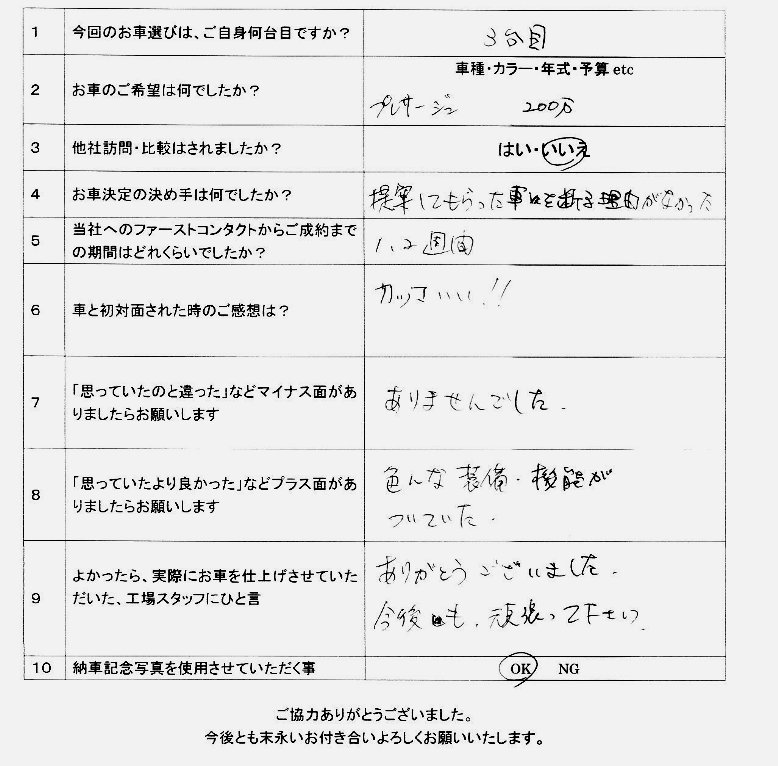 1 今回のお車選びは、ご自身何台目ですか? 3台目
車種・カラー・年式・予算 etc
2 お車のご希望は何でしたか? プレサージュ 200万
3 他社訪問・比較はされましたか? はい・いいえ
4 お車決定の決め手は何でしたか? 提案してもらった車を断る理由がなかった
当社へのファーストコンタクトからご成約まで
5 の期間はどれくらいでしたか? 1、2週間
6 車と初対面された時のご感想は? カッコいい!!
「思っていたのと違った」などマイナス面があ
7 りましたらお願いします ありませんでした.
「思っていたより良かった」などプラス面があ 色んな装備・機能が
8 りましたらお願いします ついていた.
よかったら、実際にお車を仕上げさせていた ありがとうございました.
9 だいた、工場スタッフにひと言 今後も、頑張って下さい
10 納車記念写真を使用させていただく事 OK NG
ご協力ありがとうございました。
今後とも末永いお付き合いよろしくお願いいたします。